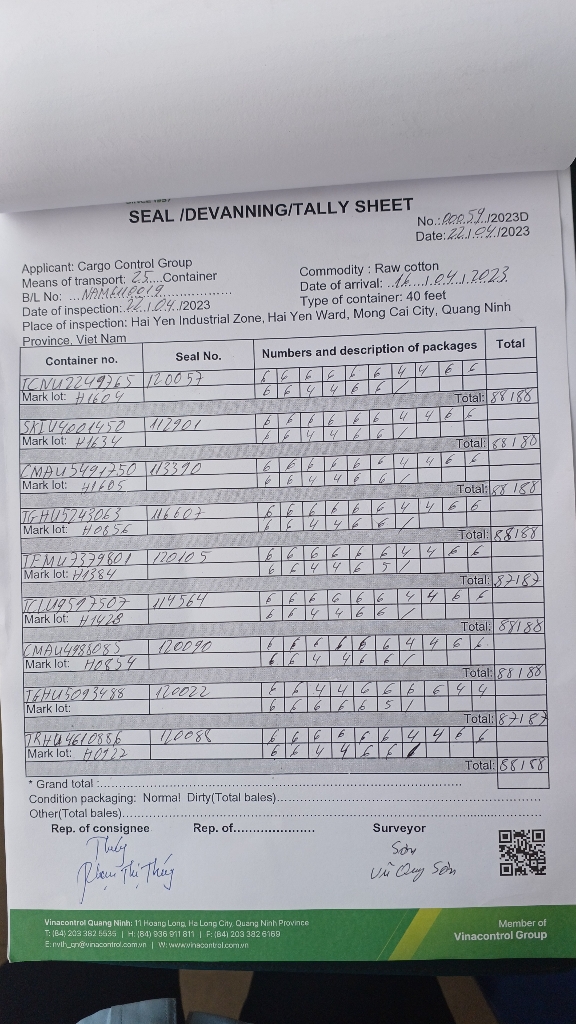 SEAL /DEVANNING/TALLY SHEET
No.:00059/2023D
Date:22/04/2023
Applicant: Cargo Control Group
Commodity : Raw cotton
Means of transport: 25 Container
Date of arrival: 16/04/2023
B/L No: NAM6110019
Type of container: 40 feet
Date of inspection: 22/04/2023
Place of inspection: Hai Yen Industrial Zone, Hai Yen Ward, Mong Cai City, Quang Ninh
Province, Viet Nam
Container no. Seal No. Numbers and description of packages Total
TCNU2249765 120057 6 6 6 6 6 6 4 4 6 6
Mark lot: H1604 6 6 4 4 6 6 /
Total: 88188
SKIU4001450 112901 6 6 6 6 6 6 4 4 6 6
Mark lot: H1634 6 6 4 4 6 6 /
Total: 88188
CMAU5491750 113390 6 6 6 6 6 6 4 4 6 6
Mark lot: H1605 6 6 4 4 6 6 /
Total: 88188
TGHU5243063 116607 6 6 6 6 6 6 4 4 6 6
Mark lot: H0856 6 6 4 4 6 6 /
Total: 88188
TEMU7379801 120105 6 6 6 6 6 6 4 4 6 6
Mark lot: H1384 6 6 4 4 6 5 /
Total: 87187
TCLU9517507 114564 6 6 6 6 6 6 4 4 6 6
Mark lot: H1428 6 6 4 4 6 6 /
Total: 88188
CMAU4986085 120090 6 6 6 6 6 6 4 4 6 6
Mark lot: H0854 6 6 4 4 6 6 /
Total: 88188
TGHU5093488 120022 6 6 4 4 6 6 6 6 4 4
Mark lot: 6 6 6 6 6 5 /
Total: 87187
TRHU4610886 120088 6 6 6 6 6 6 4 4 6 6
Mark lot: H0922 6 6 4 4 6 6 /
Total: 88188
* Grand total :
Condition packaging: Normal Dirty(Total bales)
Other(Total bales)
Rep. of consignee Rep. of Surveyor
Thủy Sơn
Phạm Thị Thủy Vũ Quý Sơn
Vinacontrol Quang Ninh: 11 Hoang Long, Ha Long City, Quang Ninh Province
T: (84) 203 382 5535 | H: (84) 936 911 811 | F: (84) 203 382 6169
E: nvth_qn@vinacontrol.com.vn | W: www.vinacontrol.com.vn
Member of
Vinacontrol Group